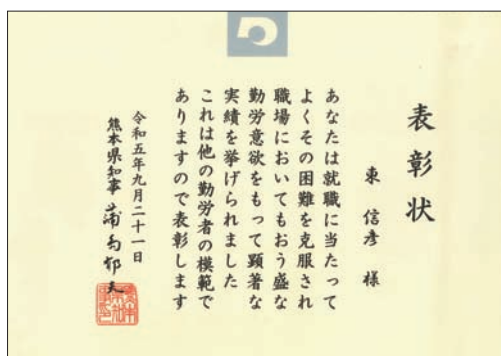 表彰状
東 信彦 様
あなたは就職に当たって
よくその困難を克服され
職場においてもおう盛な
勤労意欲をもって顕著な
実績を挙げられました
これは他の勤労者の模範で
ありますので表彰します
令和五年九月二十一日
熊本県知事 蒲島郁夫